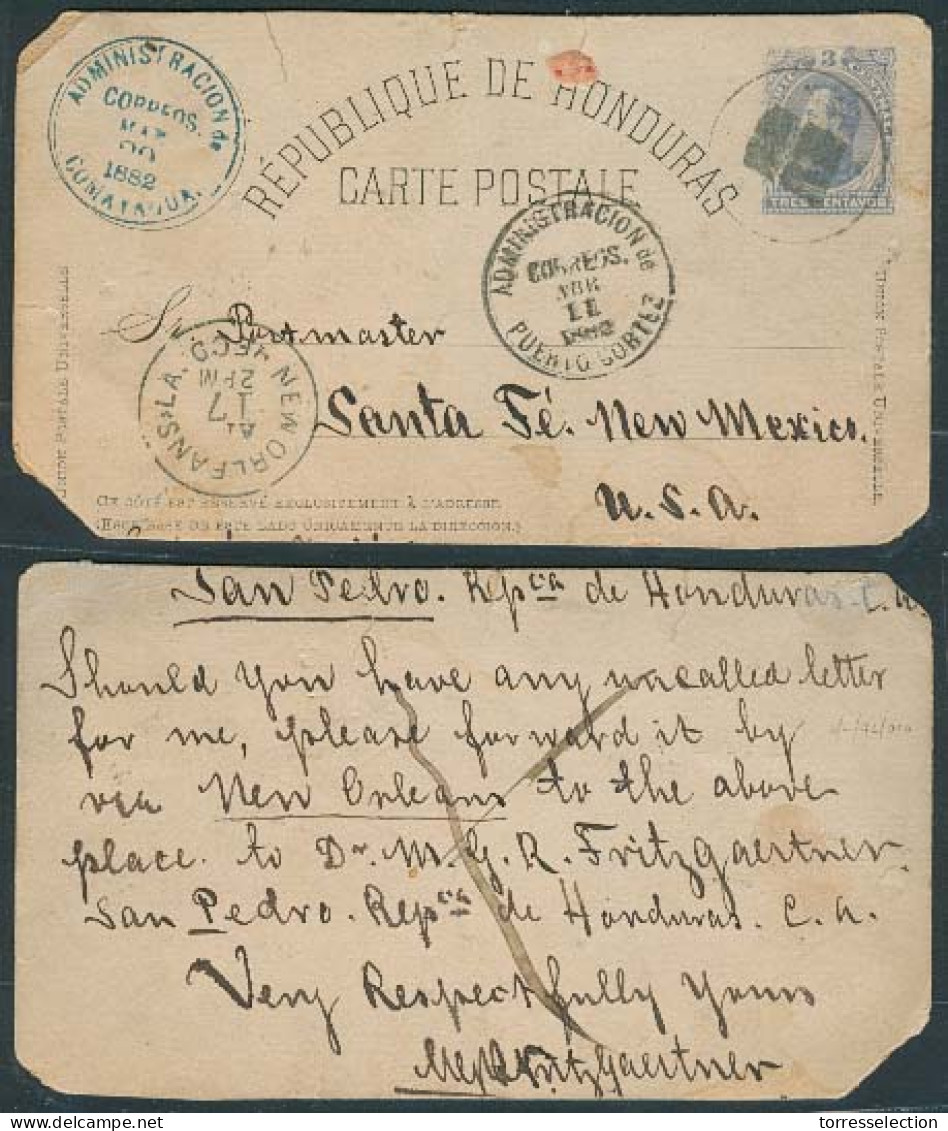 ADMINISTRACION de
CORREOS.
1882
COMAYAGUA.
RÉPUBLIQUE DE HONDURAS
CARTE POSTALE
3
TRES CENTAVOS
ADMINISTRACION de
CORREOS.
11
PUERTO CORTEZ
UNION POSTALE UNIVERSELLE
UNION POSTALE UNIVERSELLE
Sr. Postmaster
NEW ORLEANS LA.
REC'D
2 PM
17
Santa Fé. New Mexico.
U. S. A.
CE CÔTÉ EST RÉSERVÉ EXCLUSIVEMENT À L'ADRESSE
(ESCRÍBASE DE ESTE LADO ÚNICAMENTE LA DIRECCION.)
San Pedro. Repca de Honduras. C. A.
Should you have any uncalled letter
for me, please forward it by
via New Orleans to the above
place. to Dr. M. G. R. Fritzgaertner.
San Pedro. Repca de Honduras. C. A.
Very Respectfully yours
Fritzgaertner
torresselection